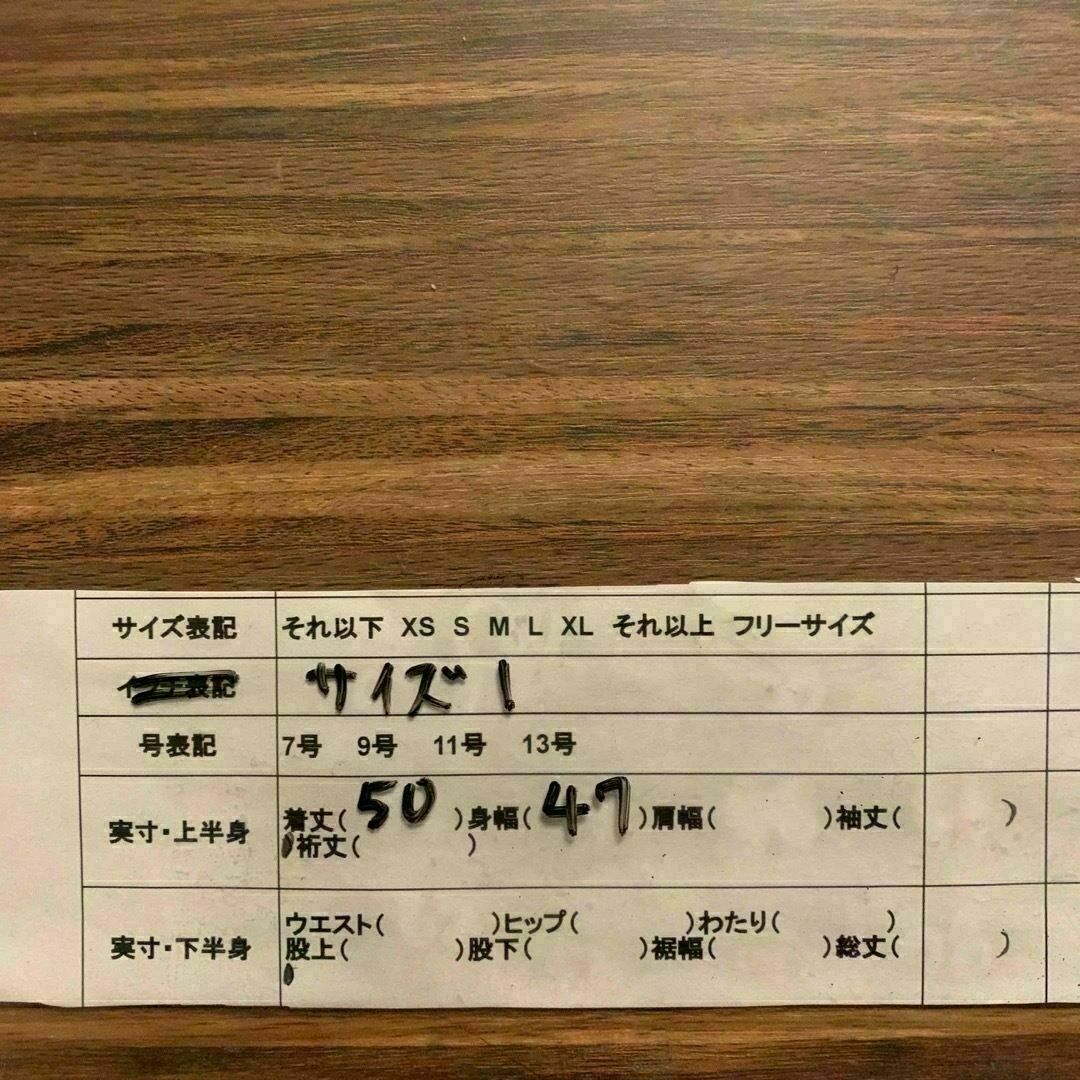 サイズ表記 それ以下 XS S M L XL それ以上 フリーサイズ
表記 サイズ1
号表記 7号 9号 11号 13号
実寸・上半身 着丈(50)身幅(47)肩幅( )袖丈( )
)裄丈( )
実寸・下半身 ウエスト( )ヒップ( )わたり( )
股上( )股下( )裾幅( )総丈( )